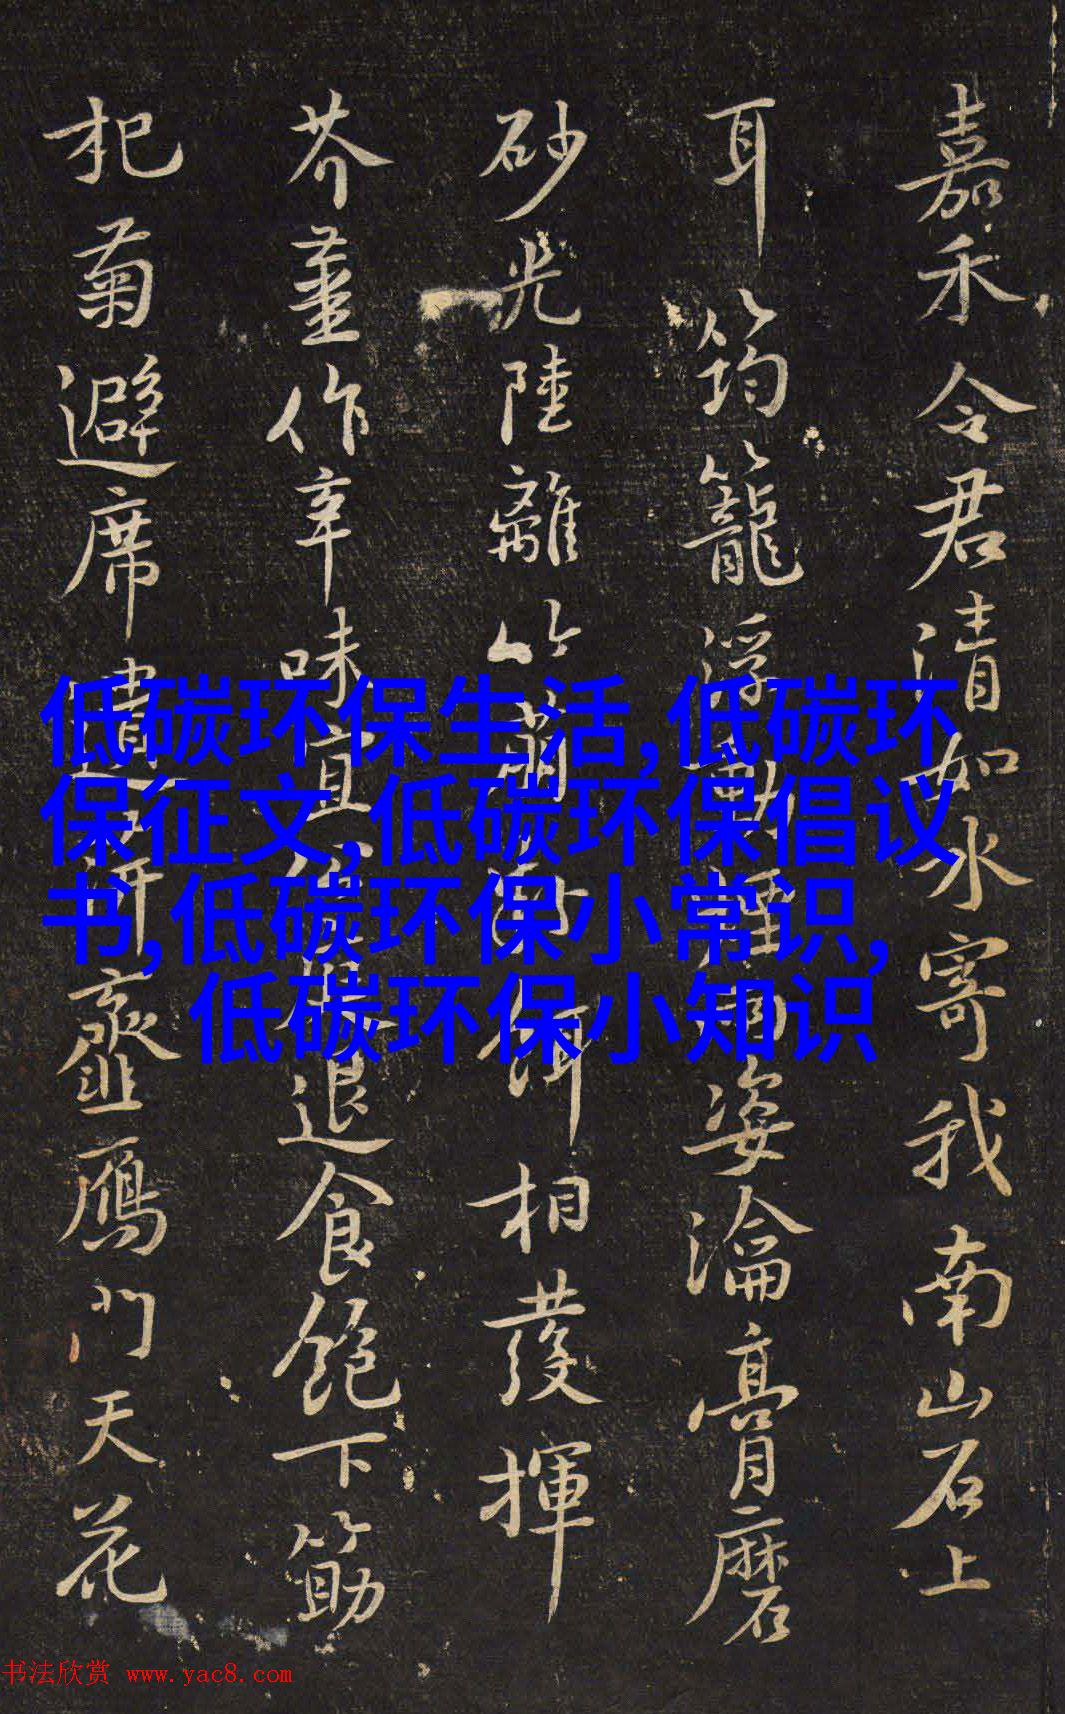 嘉禾令君清如水寄我南山石上
耳筠籠浮動煙雨姿瀹膏磨
砂光陸離竹萌粉餌相發揮
芥薑作辛味宜公庭退食飽下筯
杞菊避席遺蓱虀鴈門天花
低碳环保生活,低碳环
保征文,低碳环保倡议
书,低碳环保小常识,
低碳环保小知识
书法欣赏 www.yac8.com